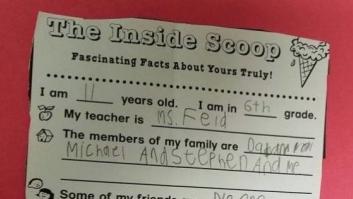 The Inside Scoop
Fascinating Facts About Yours Truly!
I am 11 years old. I am in 6th grade.
My teacher is Ms. Feid
The members of my family are
Michael And Stephen And me
Some of my friends No one